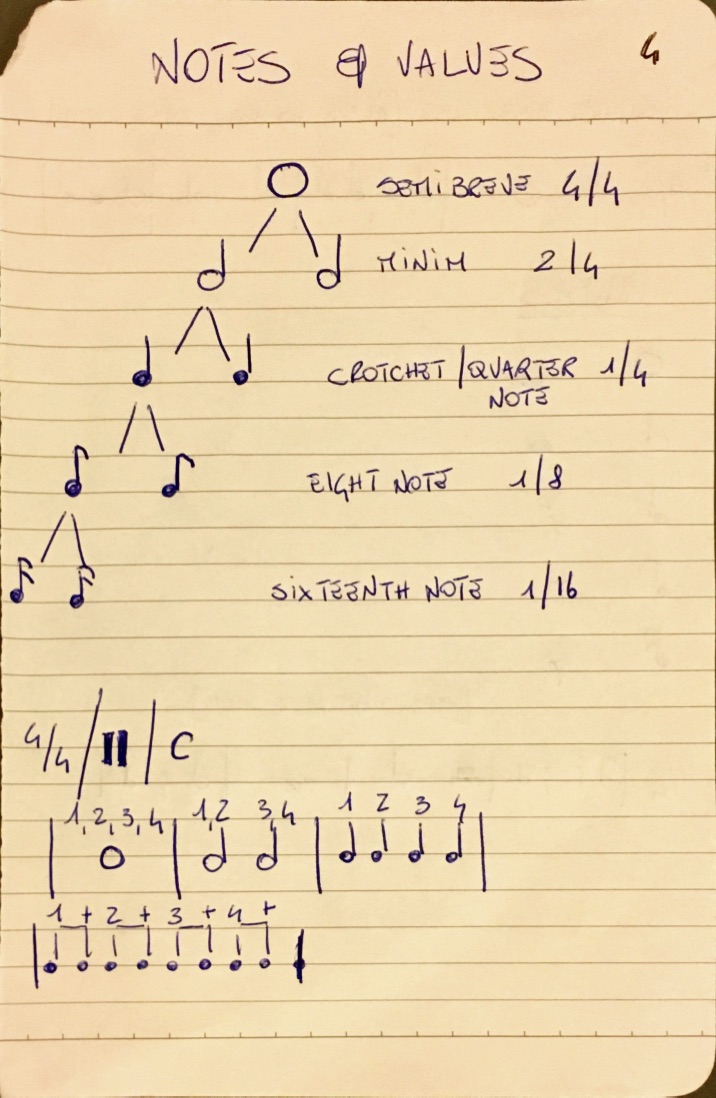 NOTES & VALUES 4
SEMIBREVE 4/4
MINIM 2/4
CROTCHET/QUARTER 1/4
NOTE
EIGHT NOTE 1/8
SIXTEENTH NOTE 1/16
4/4 / II / C
1,2,3,4 1,2 3,4 1 2 3 4
1 + 2 + 3 + 4 +